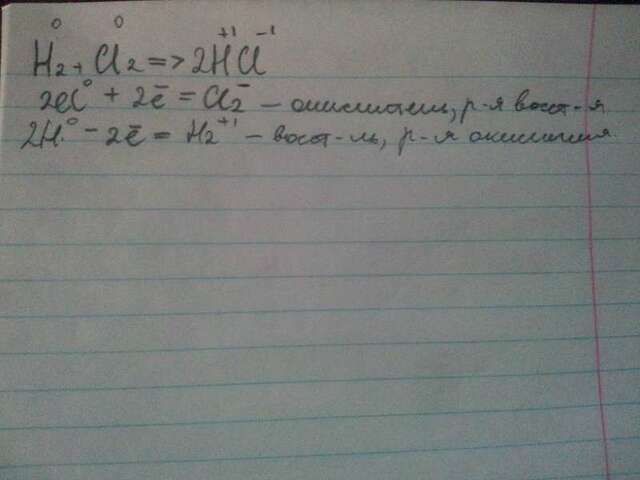 H₂⁰ + Cl₂⁰ => 2H⁺¹Cl⁻¹
2Cl⁰ + 2ē = Cl₂⁻ – окислитель, р-я восст-я
2H⁰ - 2ē = H₂⁺¹ – восст-ль, р-я окисления